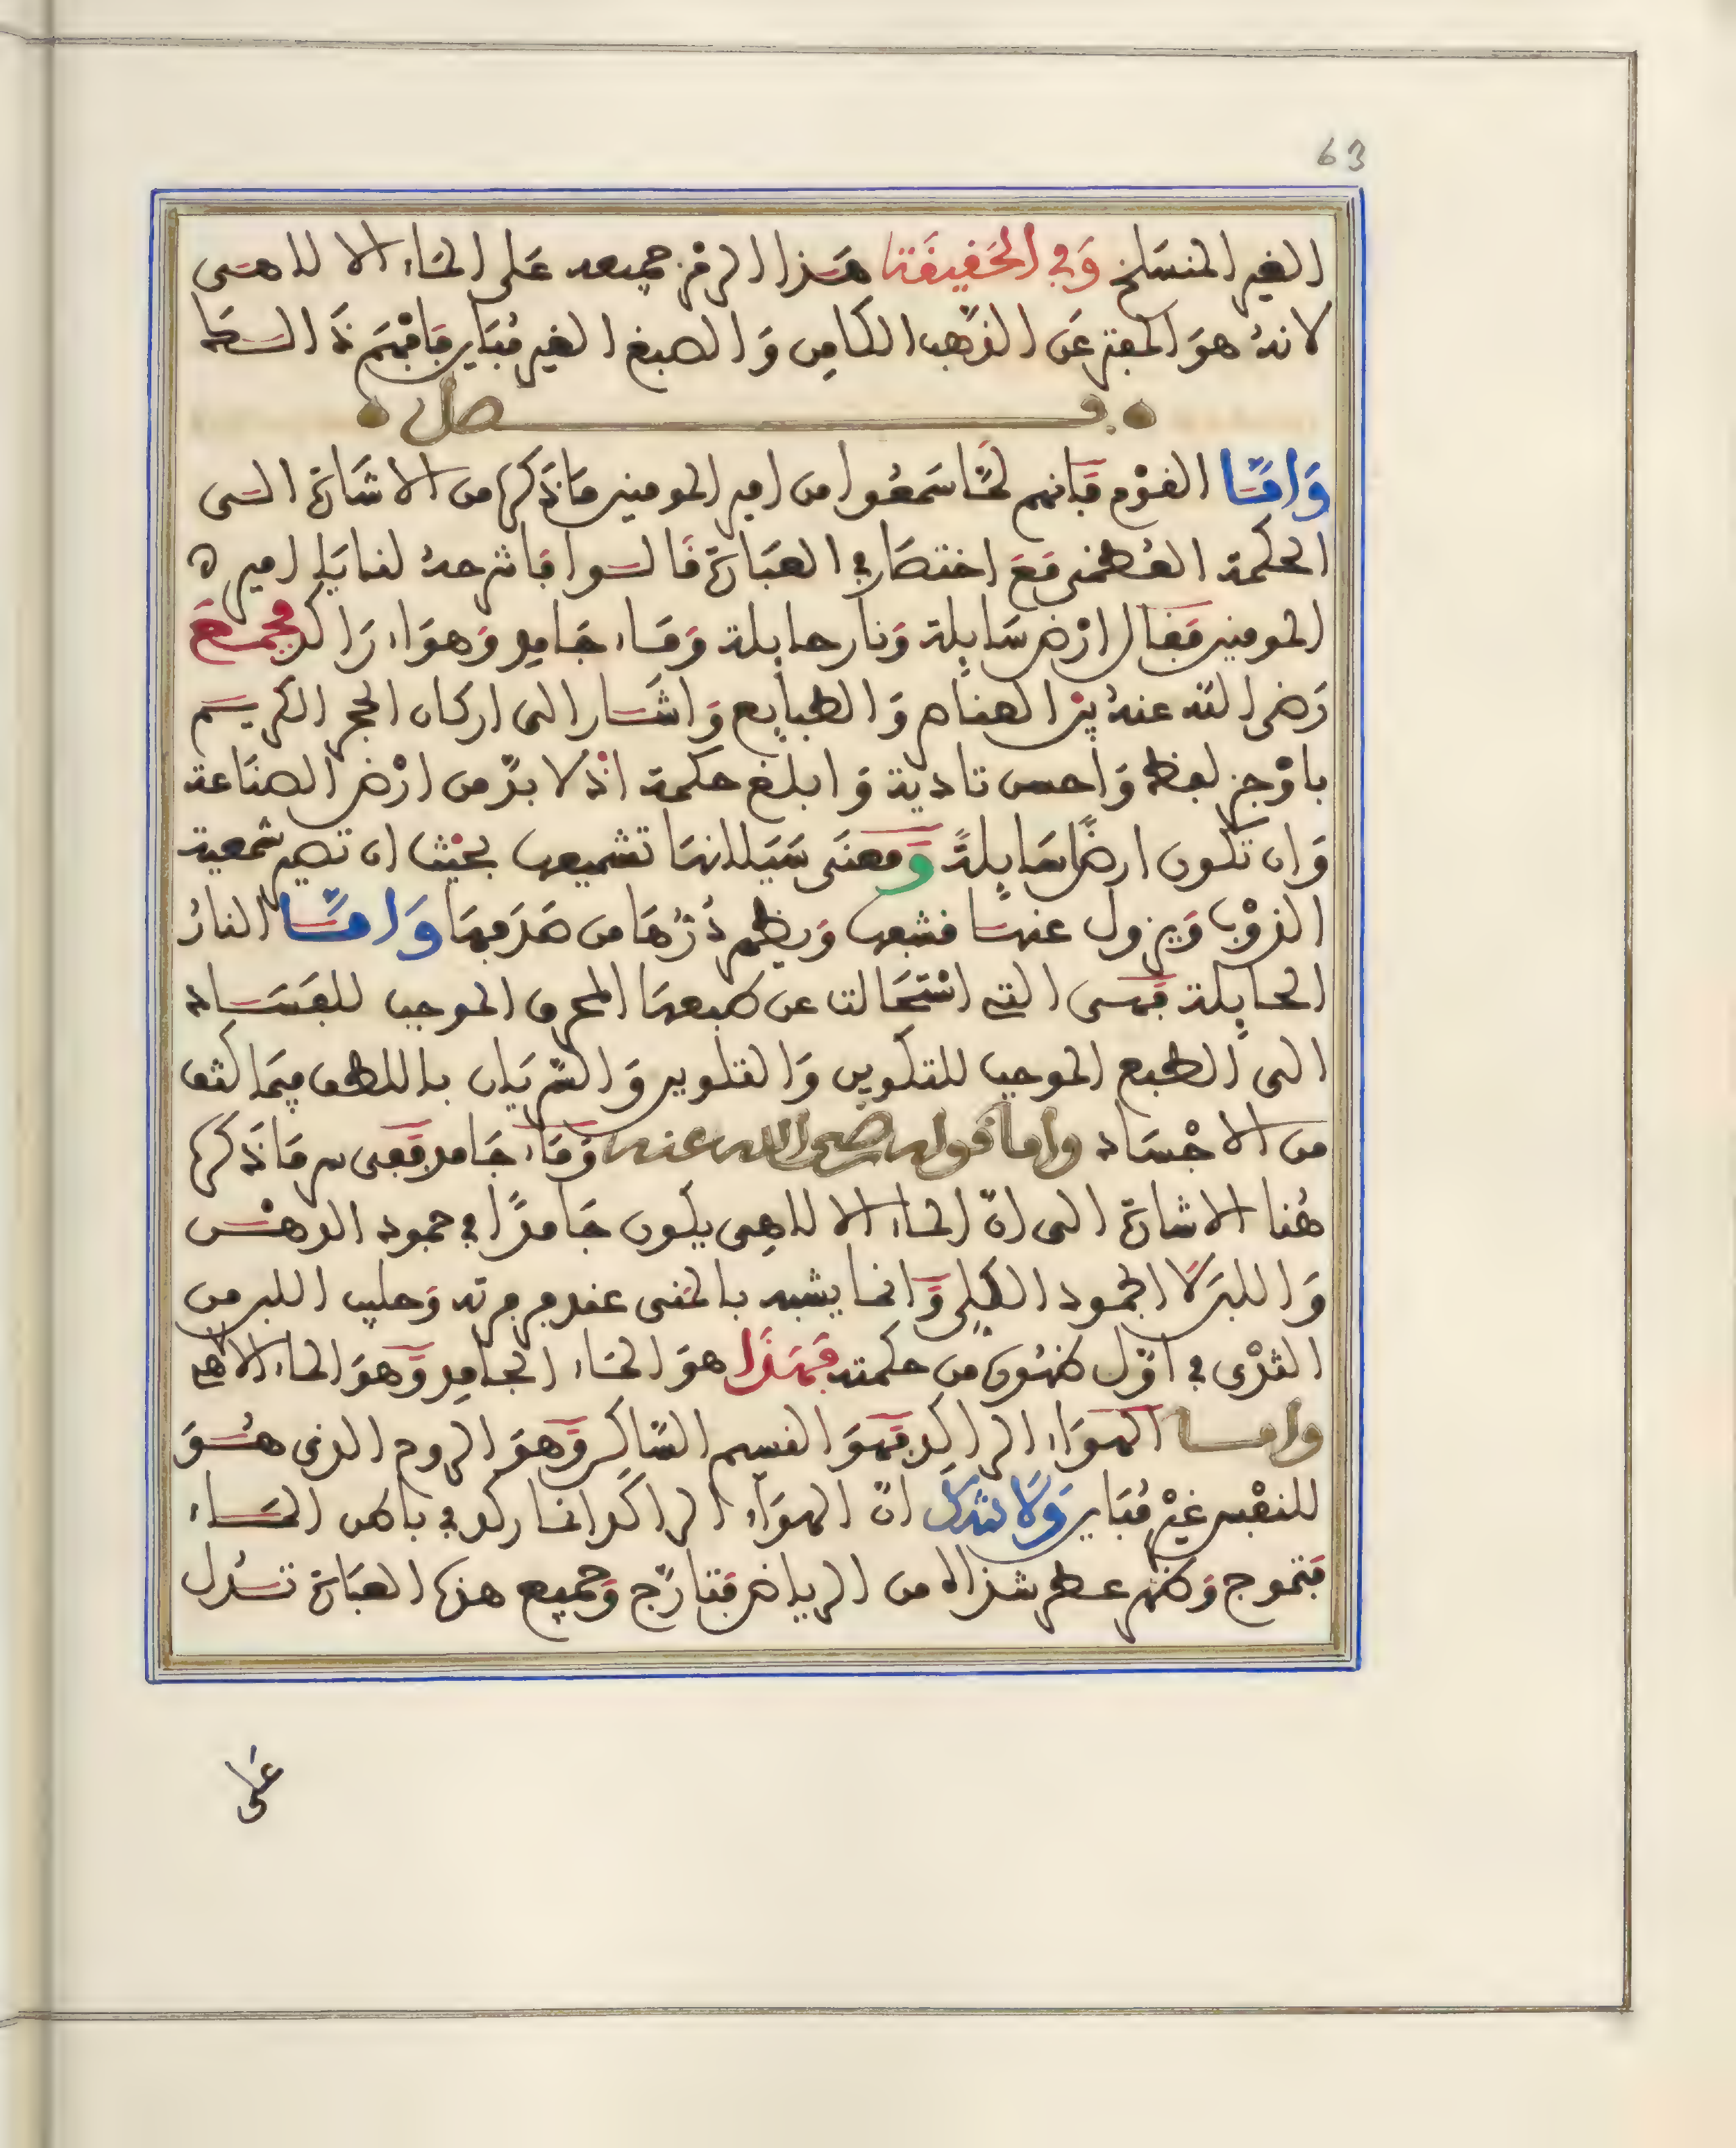 63
الغير المنسلخ وفي الحقيقة هذا الرمز جميعه على الماء الالاهي
لانه هو المعبر عن الذهب الكامن والصبغ الغير مباين فافهم ذا السطا
فصل
واما القوم فانهم لما سمعوا من امير المومنين ما ذكره من الاشارة الى
الحكمة العظمى مع اختصار في العبارة قالوا فاشرحه لنا يا امير
المومنين فقال ارض سايلة ونار حايلة وماء جامد وهواء راكد فجمع
رضي الله عنه بين العناصر والطبايع واشار الى اركان الحجر الكريم
باوجز لفظ واحسن تادية وابلغ حكمة اذ لا بد من ارض الصناعة
وان تكون ارضا سايلة ومعنى سيلانها تشميعها بحيث ان تصير شمعية
الذوب ويزول عنها قشبها ويظهر درها من صدفها واما النار
الحايلة فهي التي استحالت عن طبعها المحرق الموجب للفساد
الى الطبع الموجب للتكوين والتلوين والسريان باللطف فيما كثف
من الاجساد واما قوله رضي الله عنه وماء جامد فعن سر ما ذكره
هنا الاشارة الى ان الماء الالاهي يكون جامدا في جمود الدهن
واللبن لا الجمود الكلي وانما يشبه بالمنى عند مرمرته وحليب اللبن من
الثدى في اول ظهوره من حكمته فهذا هو الماء الجامد وهو الماء الالاهي
واما الهواء الراكد فهو النسيم الساكن وهو الروح الذي هو
للنفس غير مباين ولا شك ان الهواء الراكد انما ركد في باطن الماء
فتموج وظهر عطر شذاه من الرياض فتارج وجميع هذه العبارة تدل
على